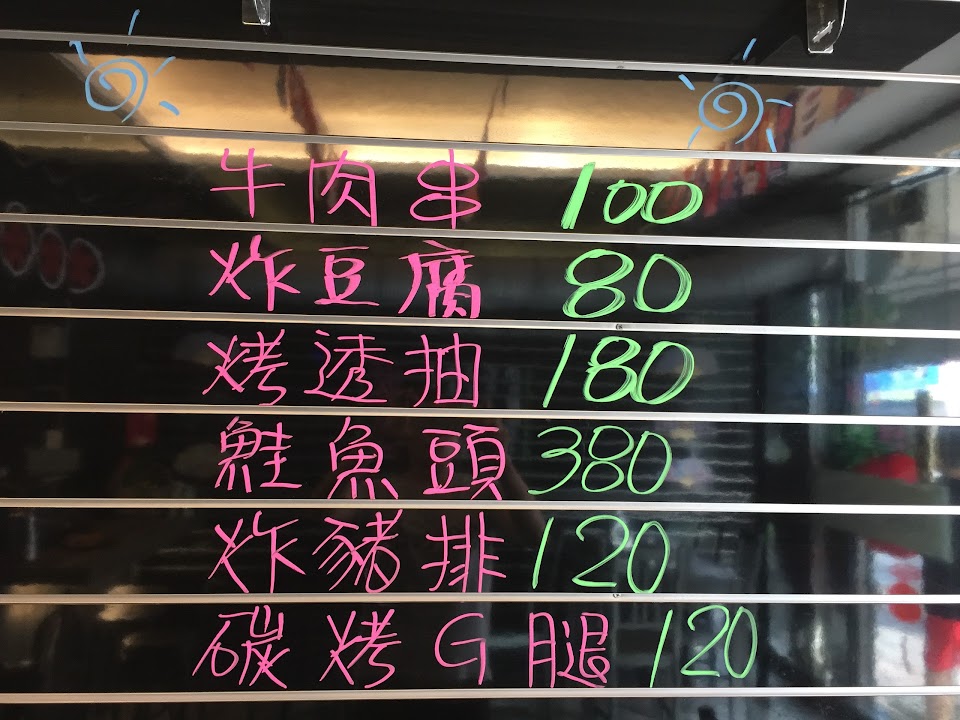 牛肉串 100
炸豆腐 80
烤透抽 180
鮭魚頭 380
炸豬排 120
碳烤G腿 120